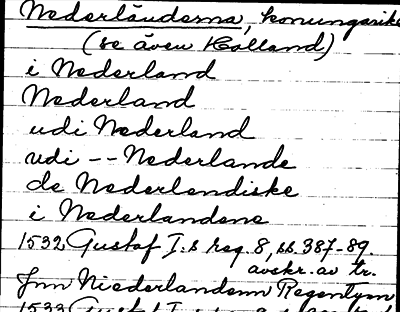 Nederländerna, konungarike
(se även Holland)
i Nederland
Nederland
udi Nederland
udi -- Nederlande
de Nederlendiske
i Nederlandene
1532 Gustaf I:s reg. 8, ss. 387-89
avskr. av tr.
Jnn Niederlandenn Regentynn
1533 Gustaf I:s